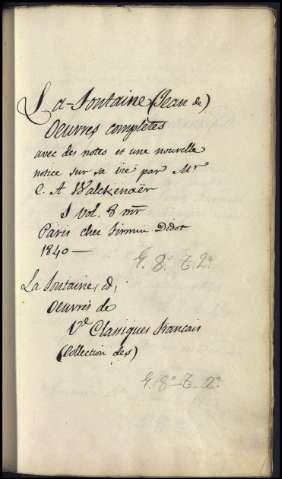 La-Fontaine (Jean de)
Oeuvres complètes
avec des notes et une nouvelle
notice sur sa vie par Mr
C. A Walckenaër
1 vol. 8
Paris chez Firmin Didot
1840 —
Y. 8º Z. 2º
La fontaine, d,
Oeuvres de
Vde Classiques francais
(Collection des)
Y. 8º Z. 2º